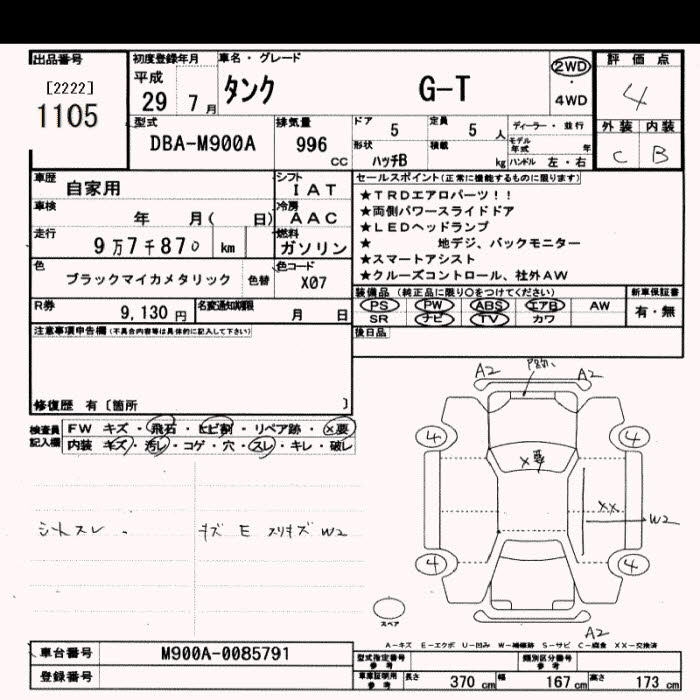 出品番号
[2222]
1105
初度登録年月
平成
29 7月
車名・グレード
タンク G-T
2WD
・
4WD
評価点
4
外装 内装
C B
型式
DBA-M900A
排気量
996
CC
ドア
5
定員
5人
形状
ハッチB
積載
kg
ディーラー・並行
モデル年式 年
ハンドル 左・右
車歴
自家用
シフト
IAT
車検
年 月( 日)
冷房
AAC
走行
9万7千870 km
燃料
ガソリン
色
ブラックマイカメタリック
色替
色コード
X07
R券
9,130円
名変通知期限
月 日
セールスポイント(正常に機能するものに限ります)
★TRDエアロパーツ!!
★両側パワースライドドア
★LEDヘッドランプ
★ 地デジ、バックモニター
★スマートアシスト
★クルーズコントロール、社外AW
装備品(純正品に限り○をつけてください)
PS PW ABS エアB AW
SR ナビ TV カワ
新車保証書
有・無
後日品
注意事項申告欄(不具合内容等は具体的に記入して下さい)
修復歴 有〔箇所 〕
検査員
記入欄
FW キズ・飛石・ヒビ割・リペア跡・×要
内装 キズ・汚レ・コゲ・穴・スレ・キレ・破レ
シートスレ
キズ E スリキズ W2
A2
A2
4
4
×要
XX
W2
4
4
スペア
A2
A-キズ E-エクボ U-凹み W-補修跡 S-サビ C-腐食 XX-交換済
車台番号
M900A-0085791
登録番号
型式指定番号
参考
類別区分番号
参考
車庫証明用
参考
長さ 370cm 幅 167cm 高さ 173cm